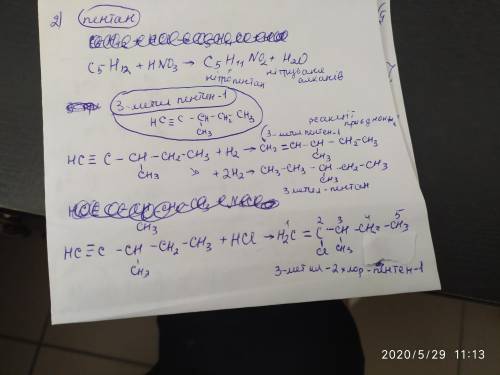 2) пентан
C5H12 + HNO3 → C5H11NO2 + H2O
нітропентан
нітрування алканів
3-метил пентен-1
HC≡C-CH-CH2-CH3
CH3
реакції приєднання
3-метил пентен-1
HC≡C-CH-CH2-CH3 + H2 → CH2=CH-CH-CH2-CH3
CH3
CH3
+2H2 → CH3-CH2-CH-CH2-CH3
CH3
3 метил-пентан
CH3
HC≡C-CH-CH2-CH3 + HCl → H2C=C-CH-CH2-CH3
1 2 3 4 5
CH3
Cl CH3
3-метил-2хлор-пентен-1
2020/5/29 11:13